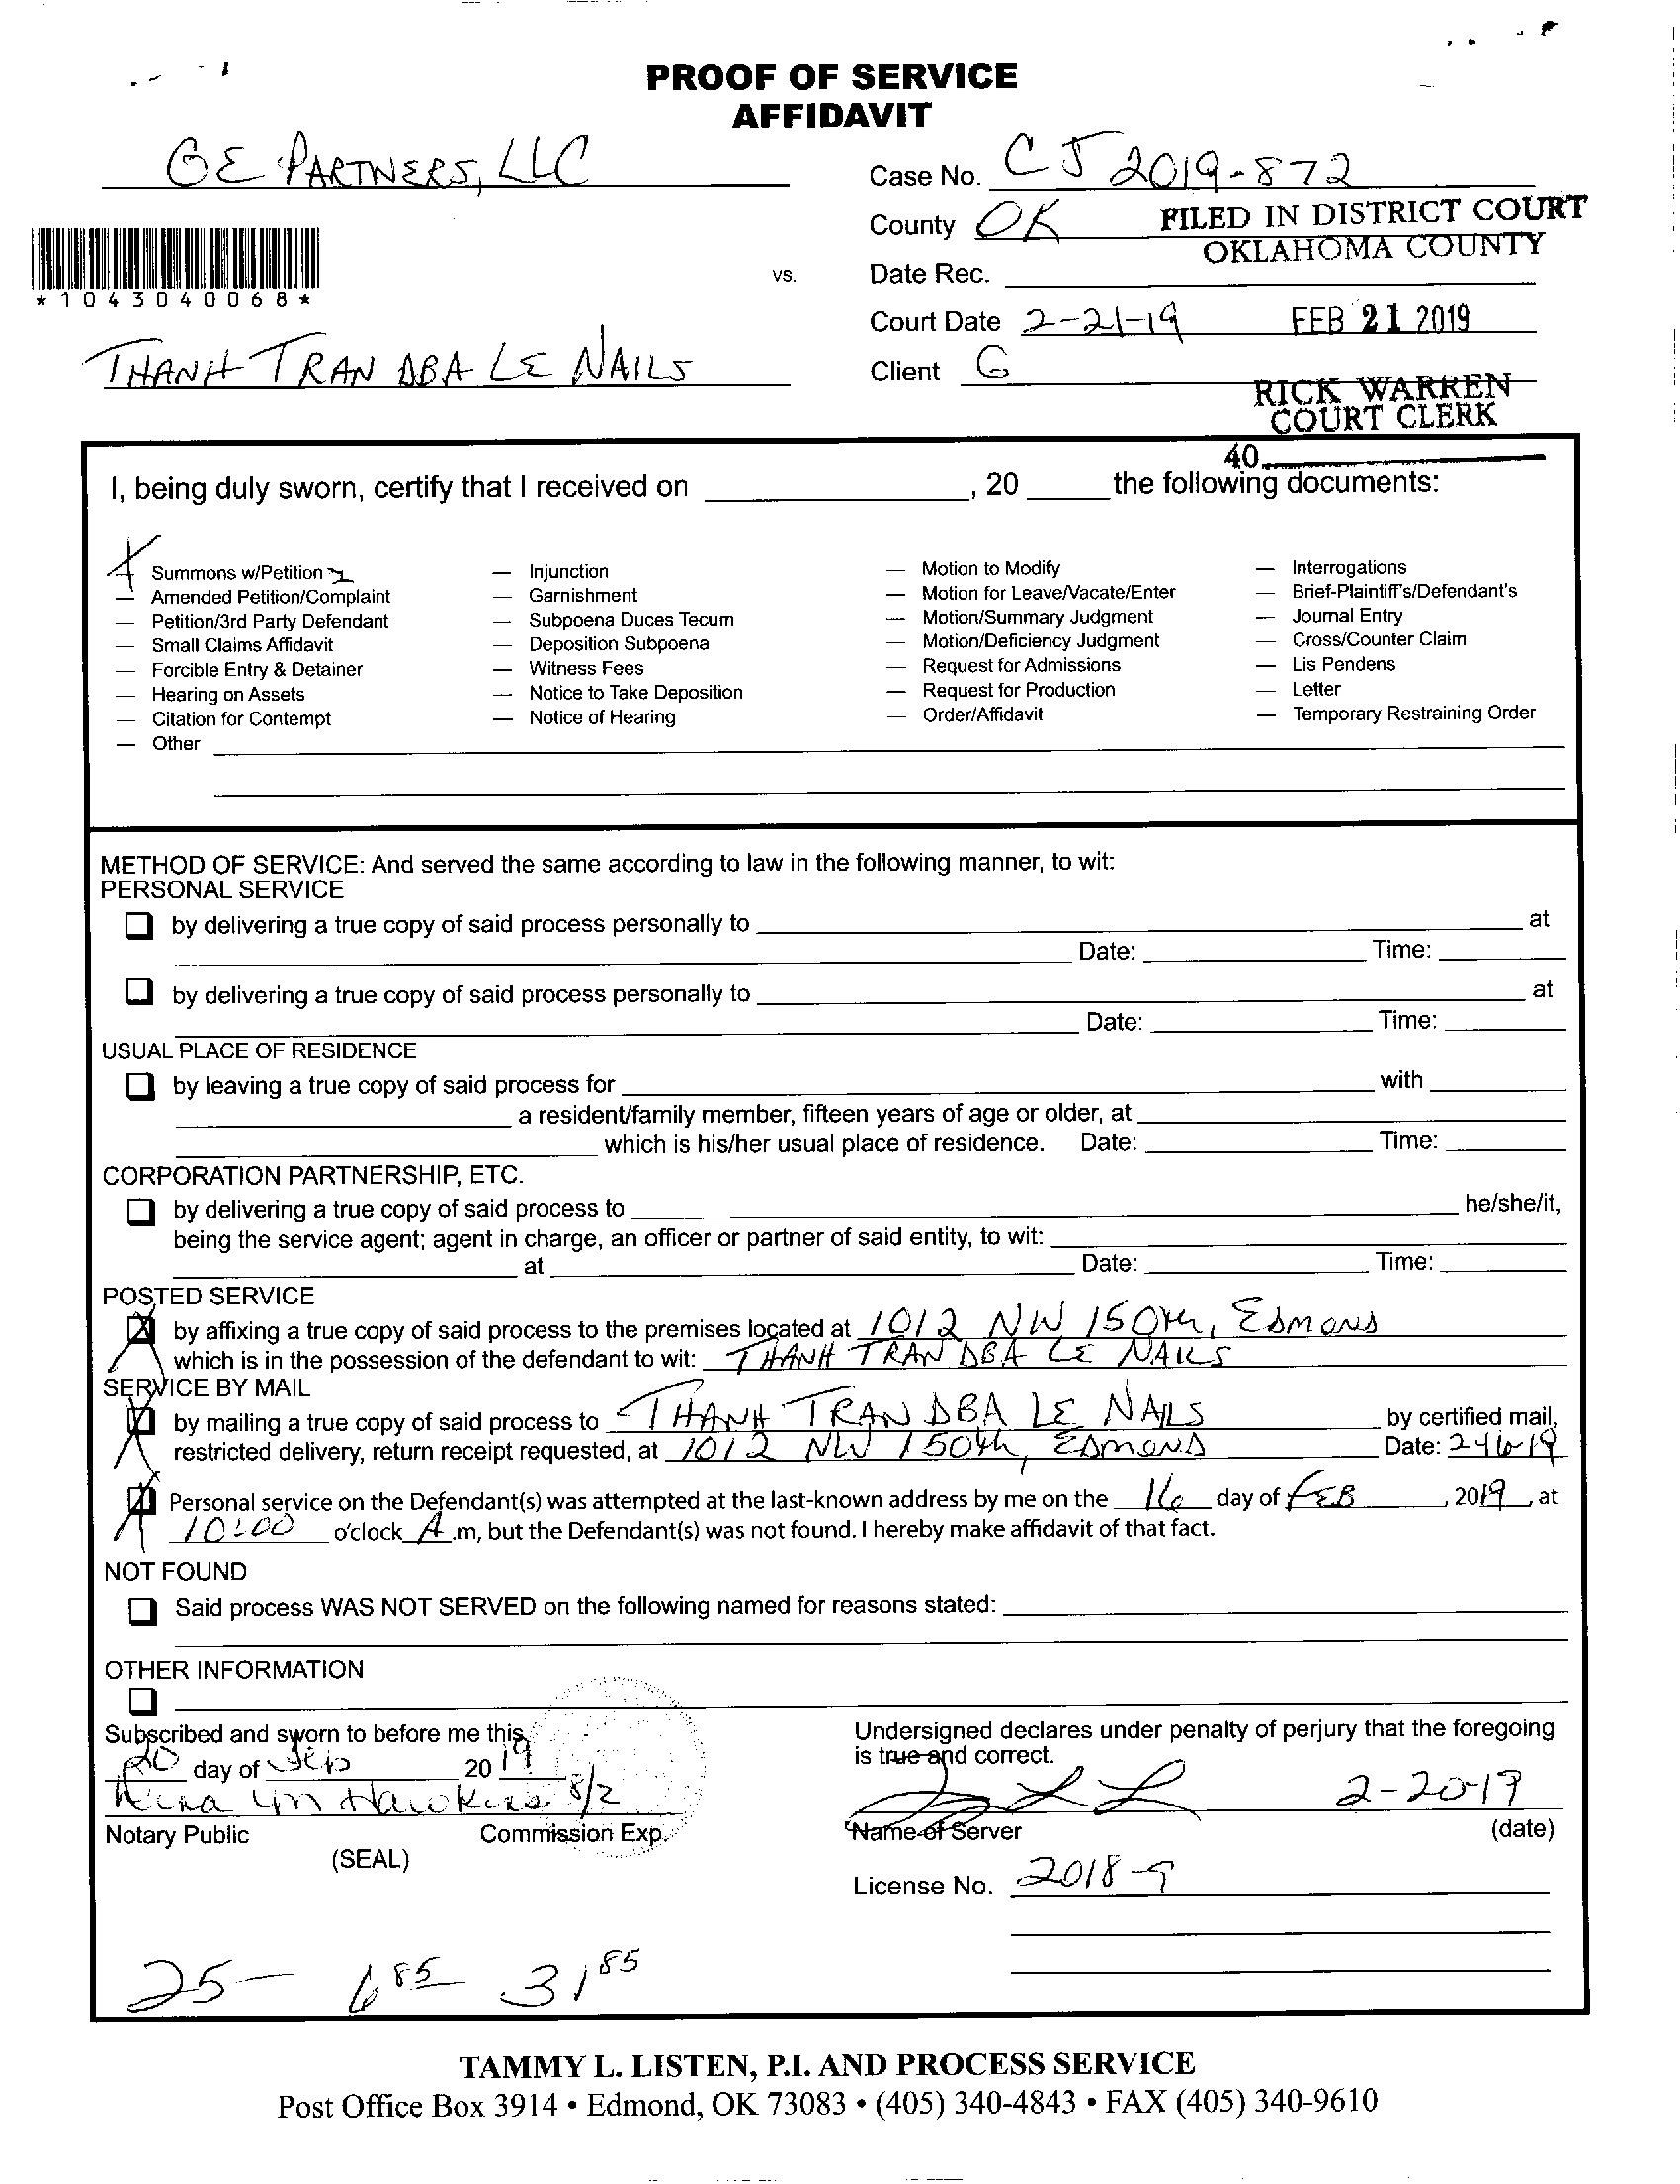 PROOF OF SERVICE
AFFIDAVIT
GE PARTNERS, LLC
Case No. CJ 2019-872
County OK
FILED IN DISTRICT COURT
OKLAHOMA COUNTY
*1043040068*
vs.
Date Rec.
Court Date 2-21-19
FEB 21 2019
THANH TRAN DBA LE NAILS
Client G
RICK WARREN
COURT CLERK
40
I, being duly sworn, certify that I received on , 20 the following documents:
Summons w/Petition
Amended Petition/Complaint
Petition/3rd Party Defendant
Small Claims Affidavit
Forcible Entry & Detainer
Hearing on Assets
Citation for Contempt
Other
Injunction
Garnishment
Subpoena Duces Tecum
Deposition Subpoena
Witness Fees
Notice to Take Deposition
Notice of Hearing
Motion to Modify
Motion for Leave/Vacate/Enter
Motion/Summary Judgment
Motion/Deficiency Judgment
Request for Admissions
Request for Production
Order/Affidavit
Interrogations
Brief-Plaintiff's/Defendant's
Journal Entry
Cross/Counter Claim
Lis Pendens
Letter
Temporary Restraining Order
METHOD OF SERVICE: And served the same according to law in the following manner, to wit:
PERSONAL SERVICE
by delivering a true copy of said process personally to at
Date: Time:
by delivering a true copy of said process personally to at
Date: Time:
USUAL PLACE OF RESIDENCE
by leaving a true copy of said process for with
a resident/family member, fifteen years of age or older, at
which is his/her usual place of residence. Date: Time:
CORPORATION PARTNERSHIP, ETC.
by delivering a true copy of said process to he/she/it,
being the service agent; agent in charge, an officer or partner of said entity, to wit:
at Date: Time:
POSTED SERVICE
by affixing a true copy of said process to the premises located at 1012 NW 150th, EDMOND
which is in the possession of the defendant to wit: THANH TRAN DBA LE NAILS
SERVICE BY MAIL
by mailing a true copy of said process to THANH TRAN DBA LE NAILS by certified mail,
restricted delivery, return receipt requested, at 1012 NW 150th, EDMOND Date: 2-16-19
Personal service on the Defendant(s) was attempted at the last-known address by me on the 16 day of FEB, 2019, at
10:00 o'clock A.m, but the Defendant(s) was not found. I hereby make affidavit of that fact.
NOT FOUND
Said process WAS NOT SERVED on the following named for reasons stated:
OTHER INFORMATION
Subscribed and sworn to before me this
20 day of 2019
8/2
Notary Public Commission Exp.
(SEAL)
Undersigned declares under penalty of perjury that the foregoing
is true and correct.
2-20-19
Name of Server (date)
License No. 2018-9
25- 6 85 31 85
TAMMY L. LISTEN, P.I. AND PROCESS SERVICE
Post Office Box 3914 • Edmond, OK 73083 • (405) 340-4843 • FAX (405) 340-9610